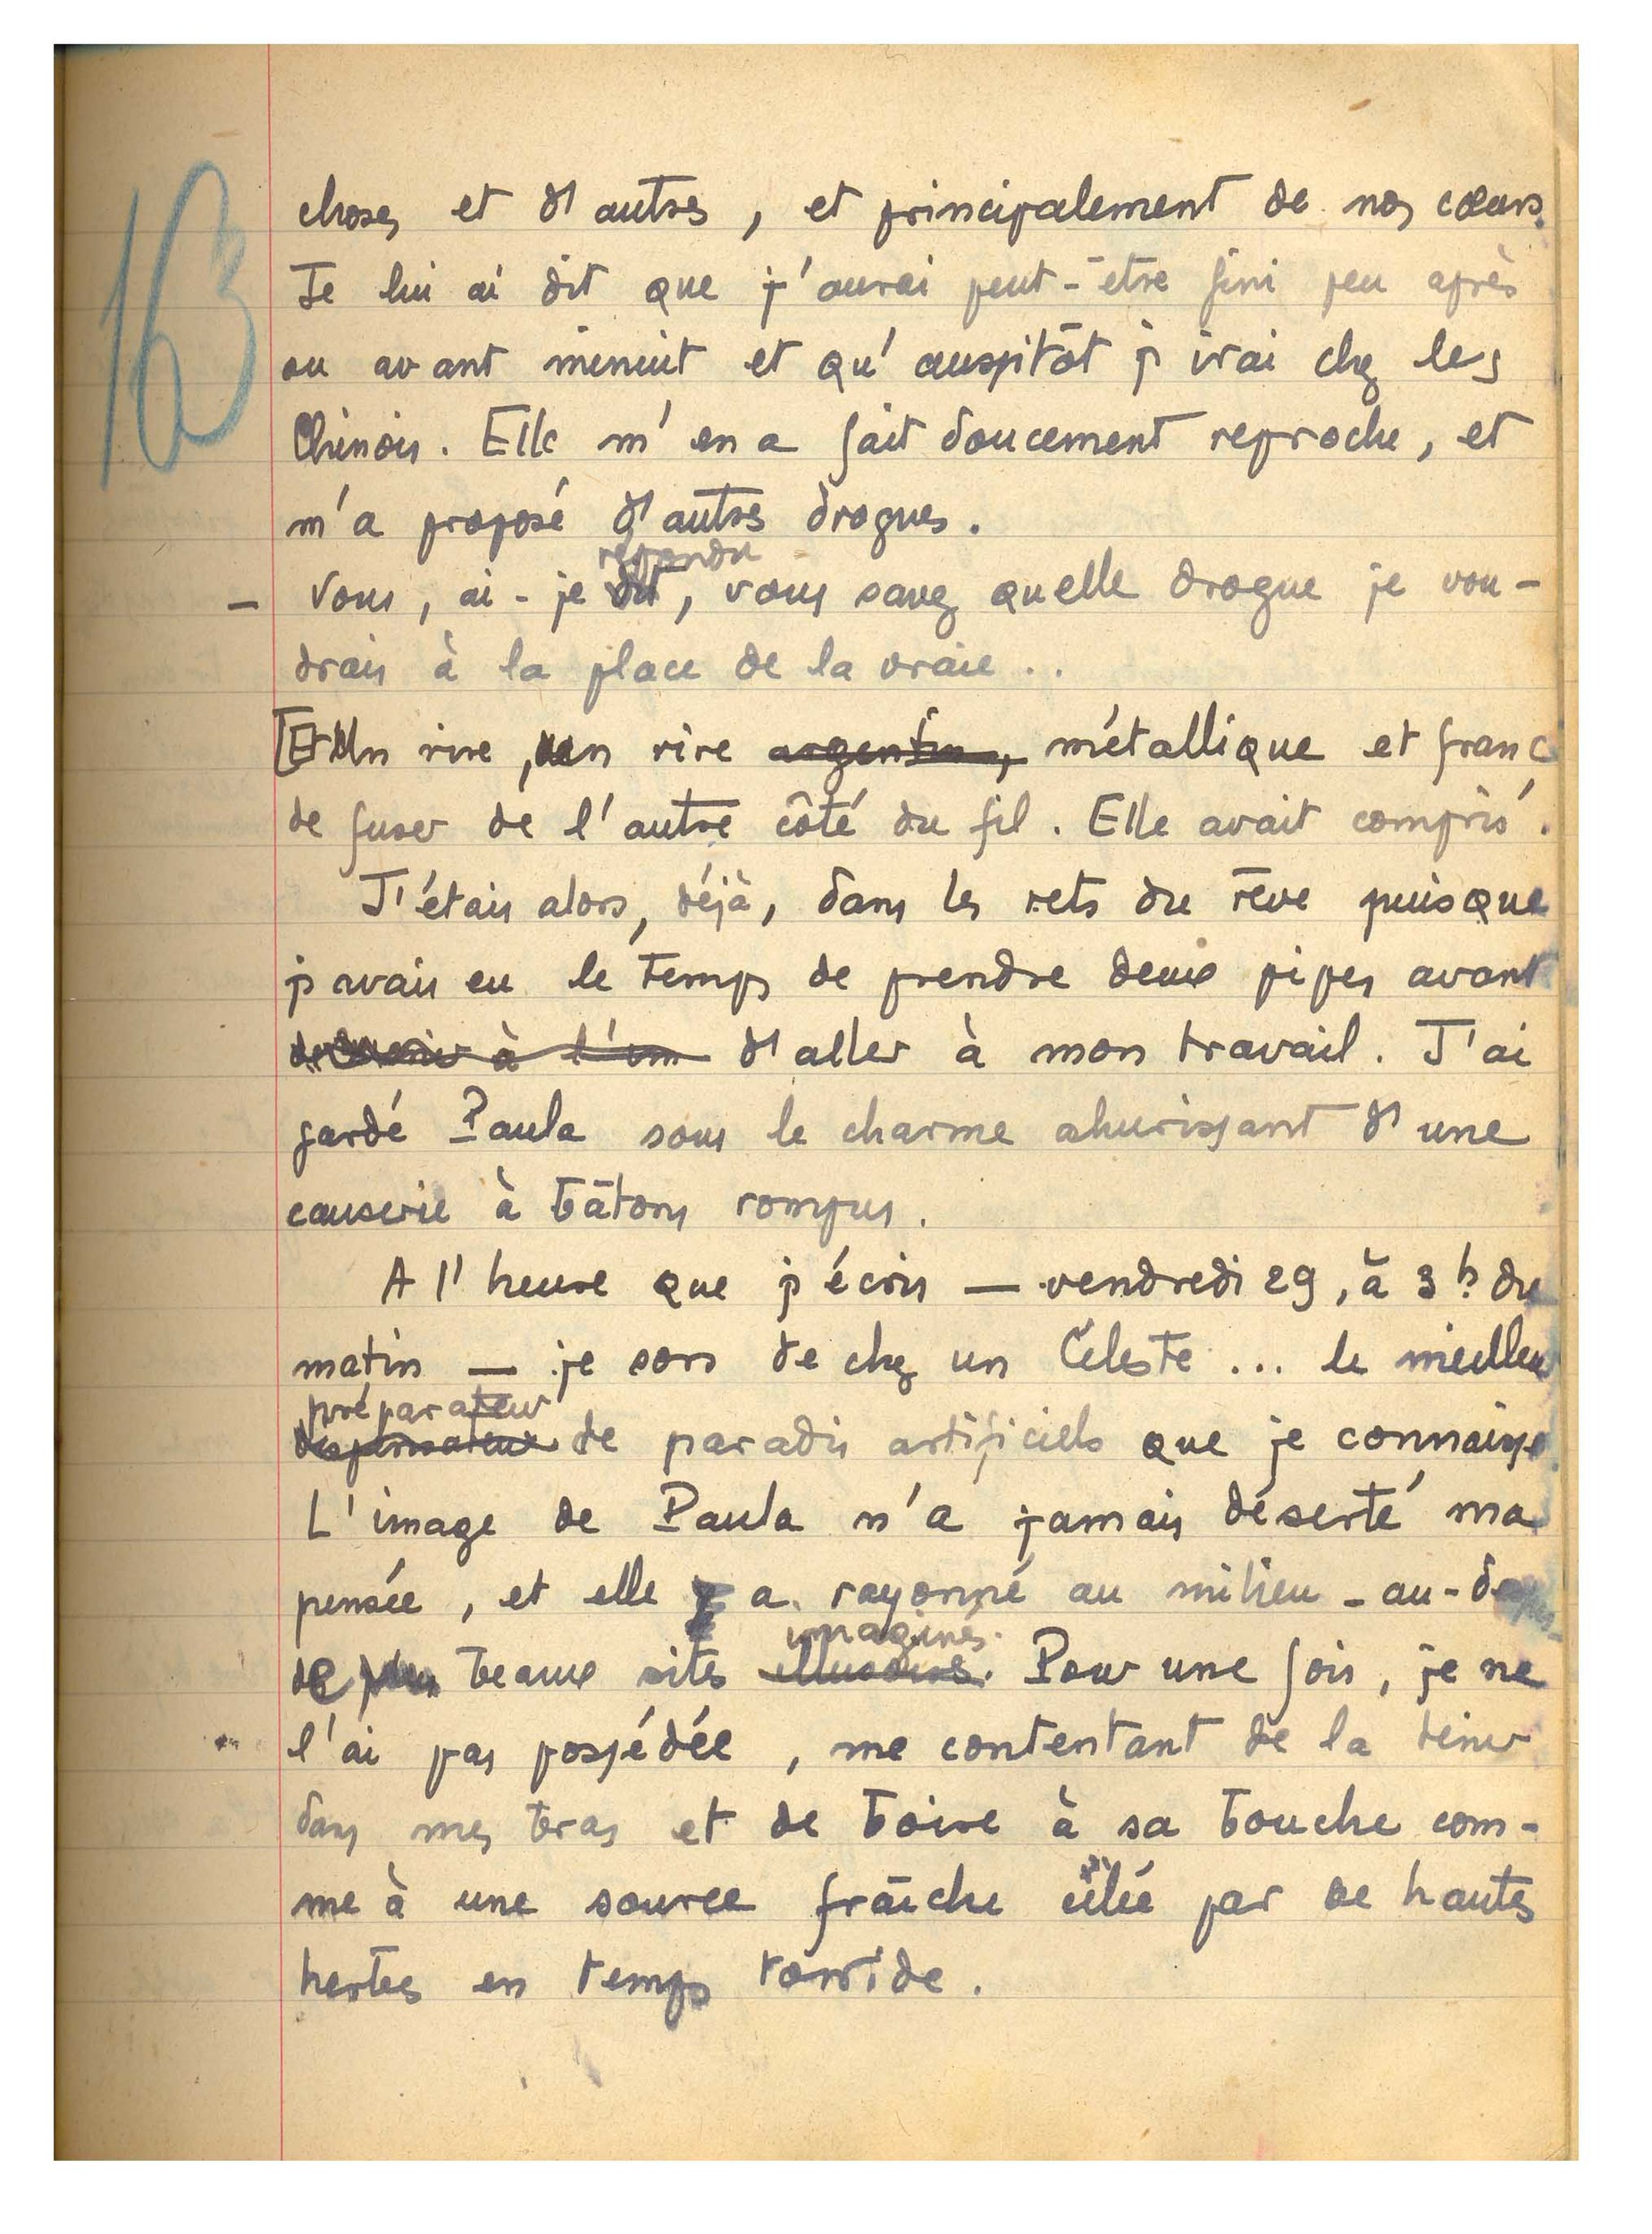 163
choses et d'autres, et principalement de nos cœurs.
Je lui ai dit que j'aurai peut-être fini peu après
ou avant minuit et qu'aussitôt j'irai chez les
Chinois. Elle m'en a fait doucement reproche, et
m'a proposé d'autres drogues.
répondu
— Vous, ai-je dit, vous savez quelle drogue je vou-
drais à la place de la vraie..
[Et Un rire, un rire argentin, métallique et franc
de fuser de l'autre côté du fil. Elle avait compris.
J'étais alors, déjà, dans les rets du rêve puisque
j'avais eu le temps de prendre deux pipes avant
à d'aller à mon travail. J'ai
gardé Paula sous le charme ahurissant d'une
causerie à bâtons rompus.
A l'heure que j'écris — vendredi 29, à 3 h. du
matin — je sors de chez un Céleste ... le meilleur
préparateur
dispensateur de paradis artificiels que je connaisse.
L'image de Paula n'a jamais déserté ma
pensée, et elle y a rayonné au milieu - au-dessus
imaginés.
de plus beaux sites illusoires. Pour une fois, je ne
l'ai pas possédée, me contentant de la tenir
dans mes bras et de boire à sa bouche com-
me à une source fraîche cilée par de hautes
herbes en temps torride.